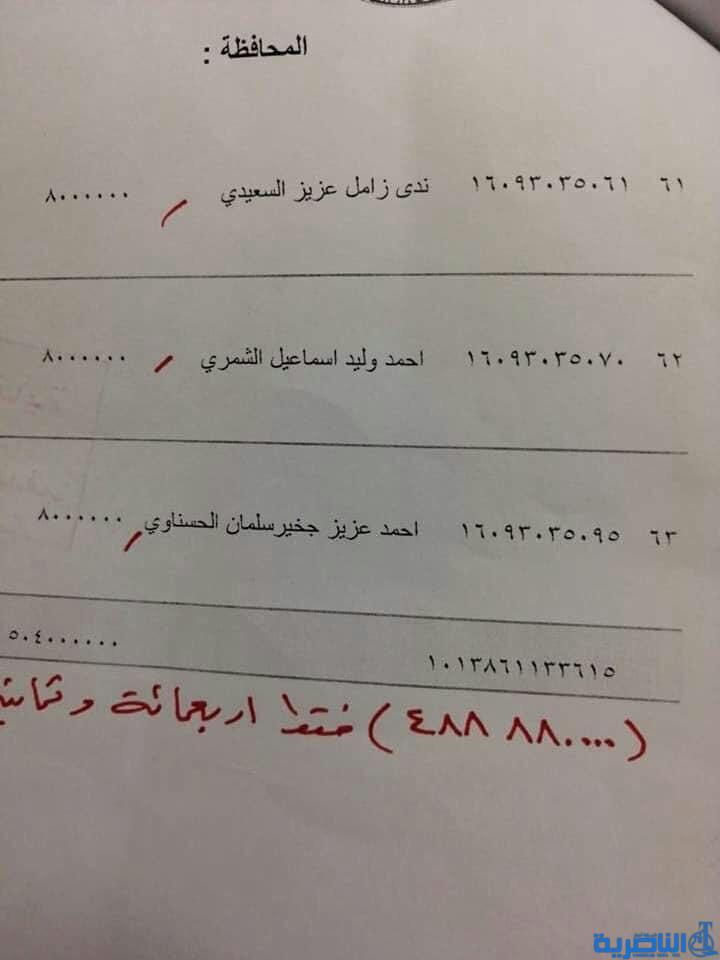 المحافظة :
٦١ ١٦٠٩٣٠٣٥٠٦١ ندى زامل عزيز السعيدي ٨٠٠٠٠٠٠
٦٢ ١٦٠٩٣٠٣٥٠٧٠ احمد وليد اسماعيل الشمري ٨٠٠٠٠٠٠
٦٣ ١٦٠٩٣٠٣٥٠٩٥ احمد عزيز جخيرسلمان الحسناوي ٨٠٠٠٠٠٠
١٠١٣٨٦١١٣٣٦١٥ ٥٠٤٠٠٠٠٠٠
فقط اربعمائة
الناصرية